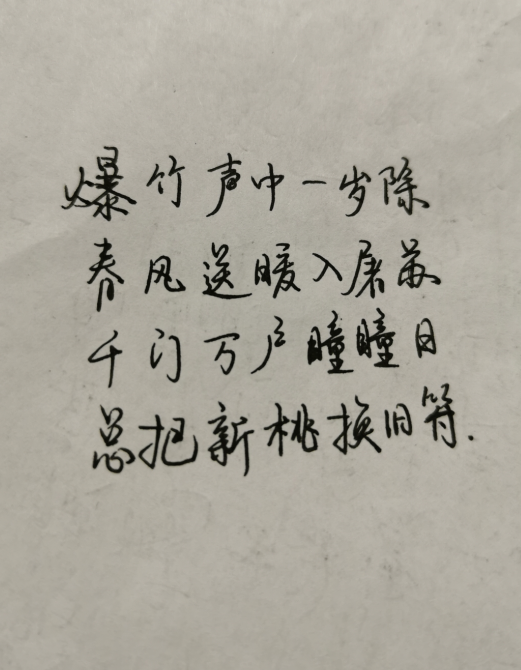 爆竹声中一岁除
春风送暖入屠苏
千门万户瞳瞳日
总把新桃换旧符.